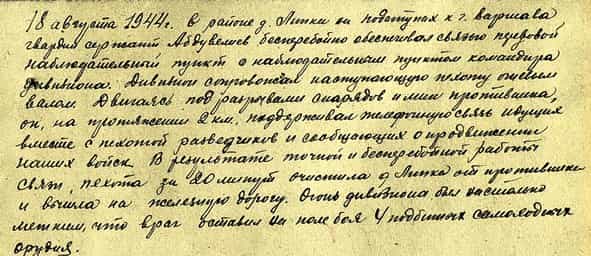 18 августа 1944г. в районе д. Липки на подступах к г. Варшава
гвардии сержант Абдувелиев бесперебойно обеспечивал связью передовой
наблюдательный пункт с наблюдательным пунктом командира
дивизиона. Дивизион сопровождал наступающую пехоту огневым
валом. Двигаясь под разрывами снарядов и мин противника,
он, на протяжении 2 км, поддерживал телефонную связь идущих
вместе с пехотой разведчиков и сообщающих о продвижении
наших войск. В результате точной и бесперебойной работы
связи, пехота за 20 минут очистила д Липки от противника
и вышла на железную дорогу. Огонь дивизиона был настолько
метким, что враг оставил на поле боя 4 подбитых самоходных
орудия.